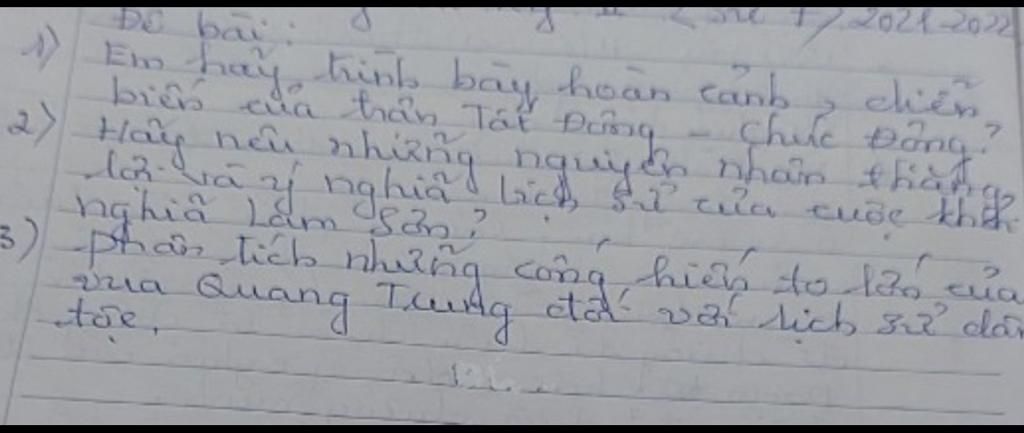 Đề bài: (sử 7) 2021-2022
1) Em hãy trình bày hoàn cảnh, diễn
biến của trận Tốt Động - Chúc Động?
2) Hãy nêu những nguyên nhân thắng
lợi và ý nghĩa lịch sử của cuộc khởi
nghĩa Lam Sơn?
3) phân tích những cống hiến to lớn của
vua Quang Trung đối với lịch sử dân
tộc.